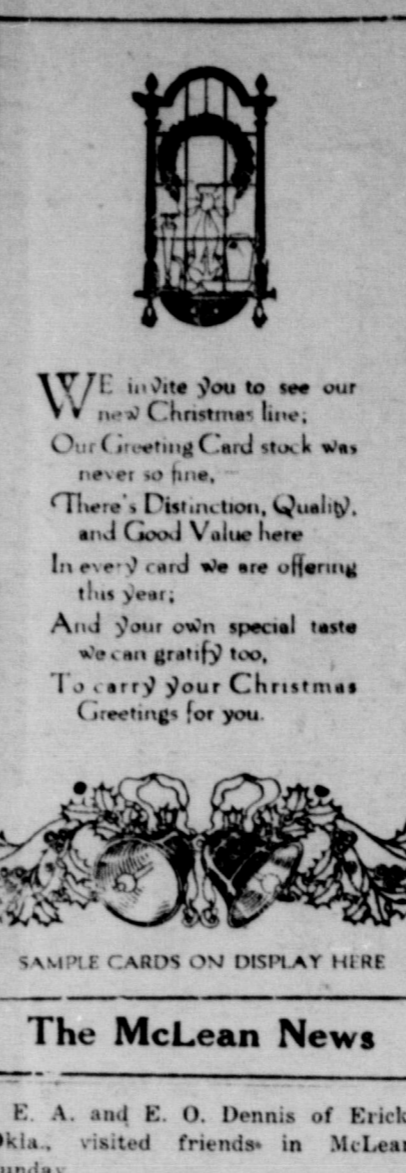 WE invite you to see our
new Christmas line;
Our Greeting Card stock was
never so fine,
There's Distinction, Quality,
and Good Value here
In every card we are offering
this year;
And your own special taste
we can gratify too,
To carry your Christmas
Greetings for you.
SAMPLE CARDS ON DISPLAY HERE
The McLean News
E. A. and E. O. Dennis of Erick
Okla., visited friends in McLean
unday